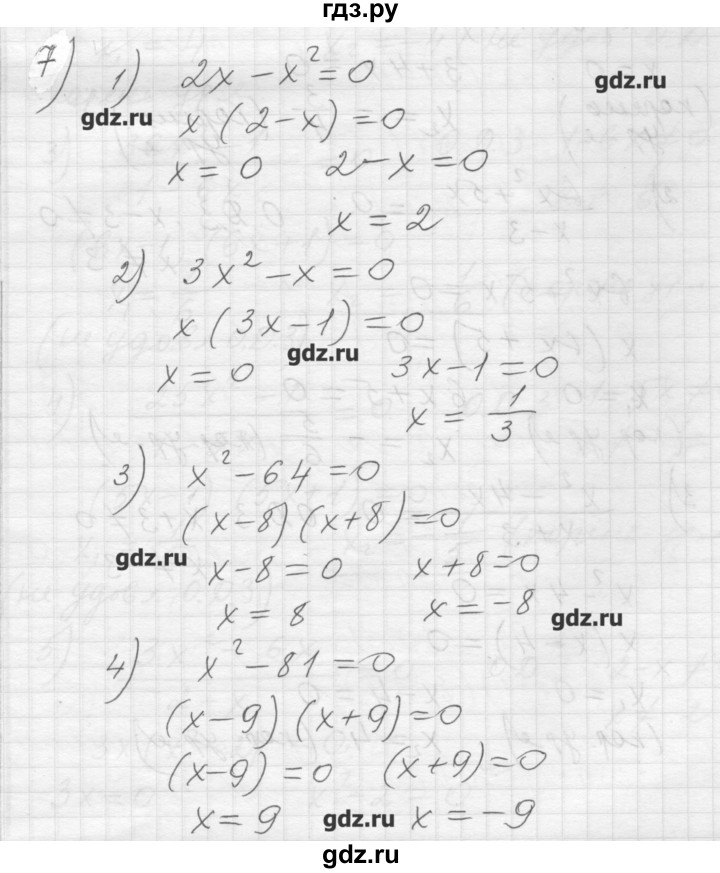 гдз.ру
7) 1) 2x - x² = 0
gdz.ru
gdz.ru
x(2 - x) = 0
x = 0 2 - x = 0
x = 2
2) 3x² - x = 0
x(3x - 1) = 0
gdz.ru
x = 0 3x - 1 = 0
x = 1/3
3) x² - 64 = 0
(x - 8)(x + 8) = 0
gdz.ru
x - 8 = 0 x + 8 = 0
x = 8 x = -8
gdz.ru
4) x² - 81 = 0
(x - 9)(x + 9) = 0
(x - 9) = 0 (x + 9) = 0
x = 9 gdz.ru x = -9
gdz.ru